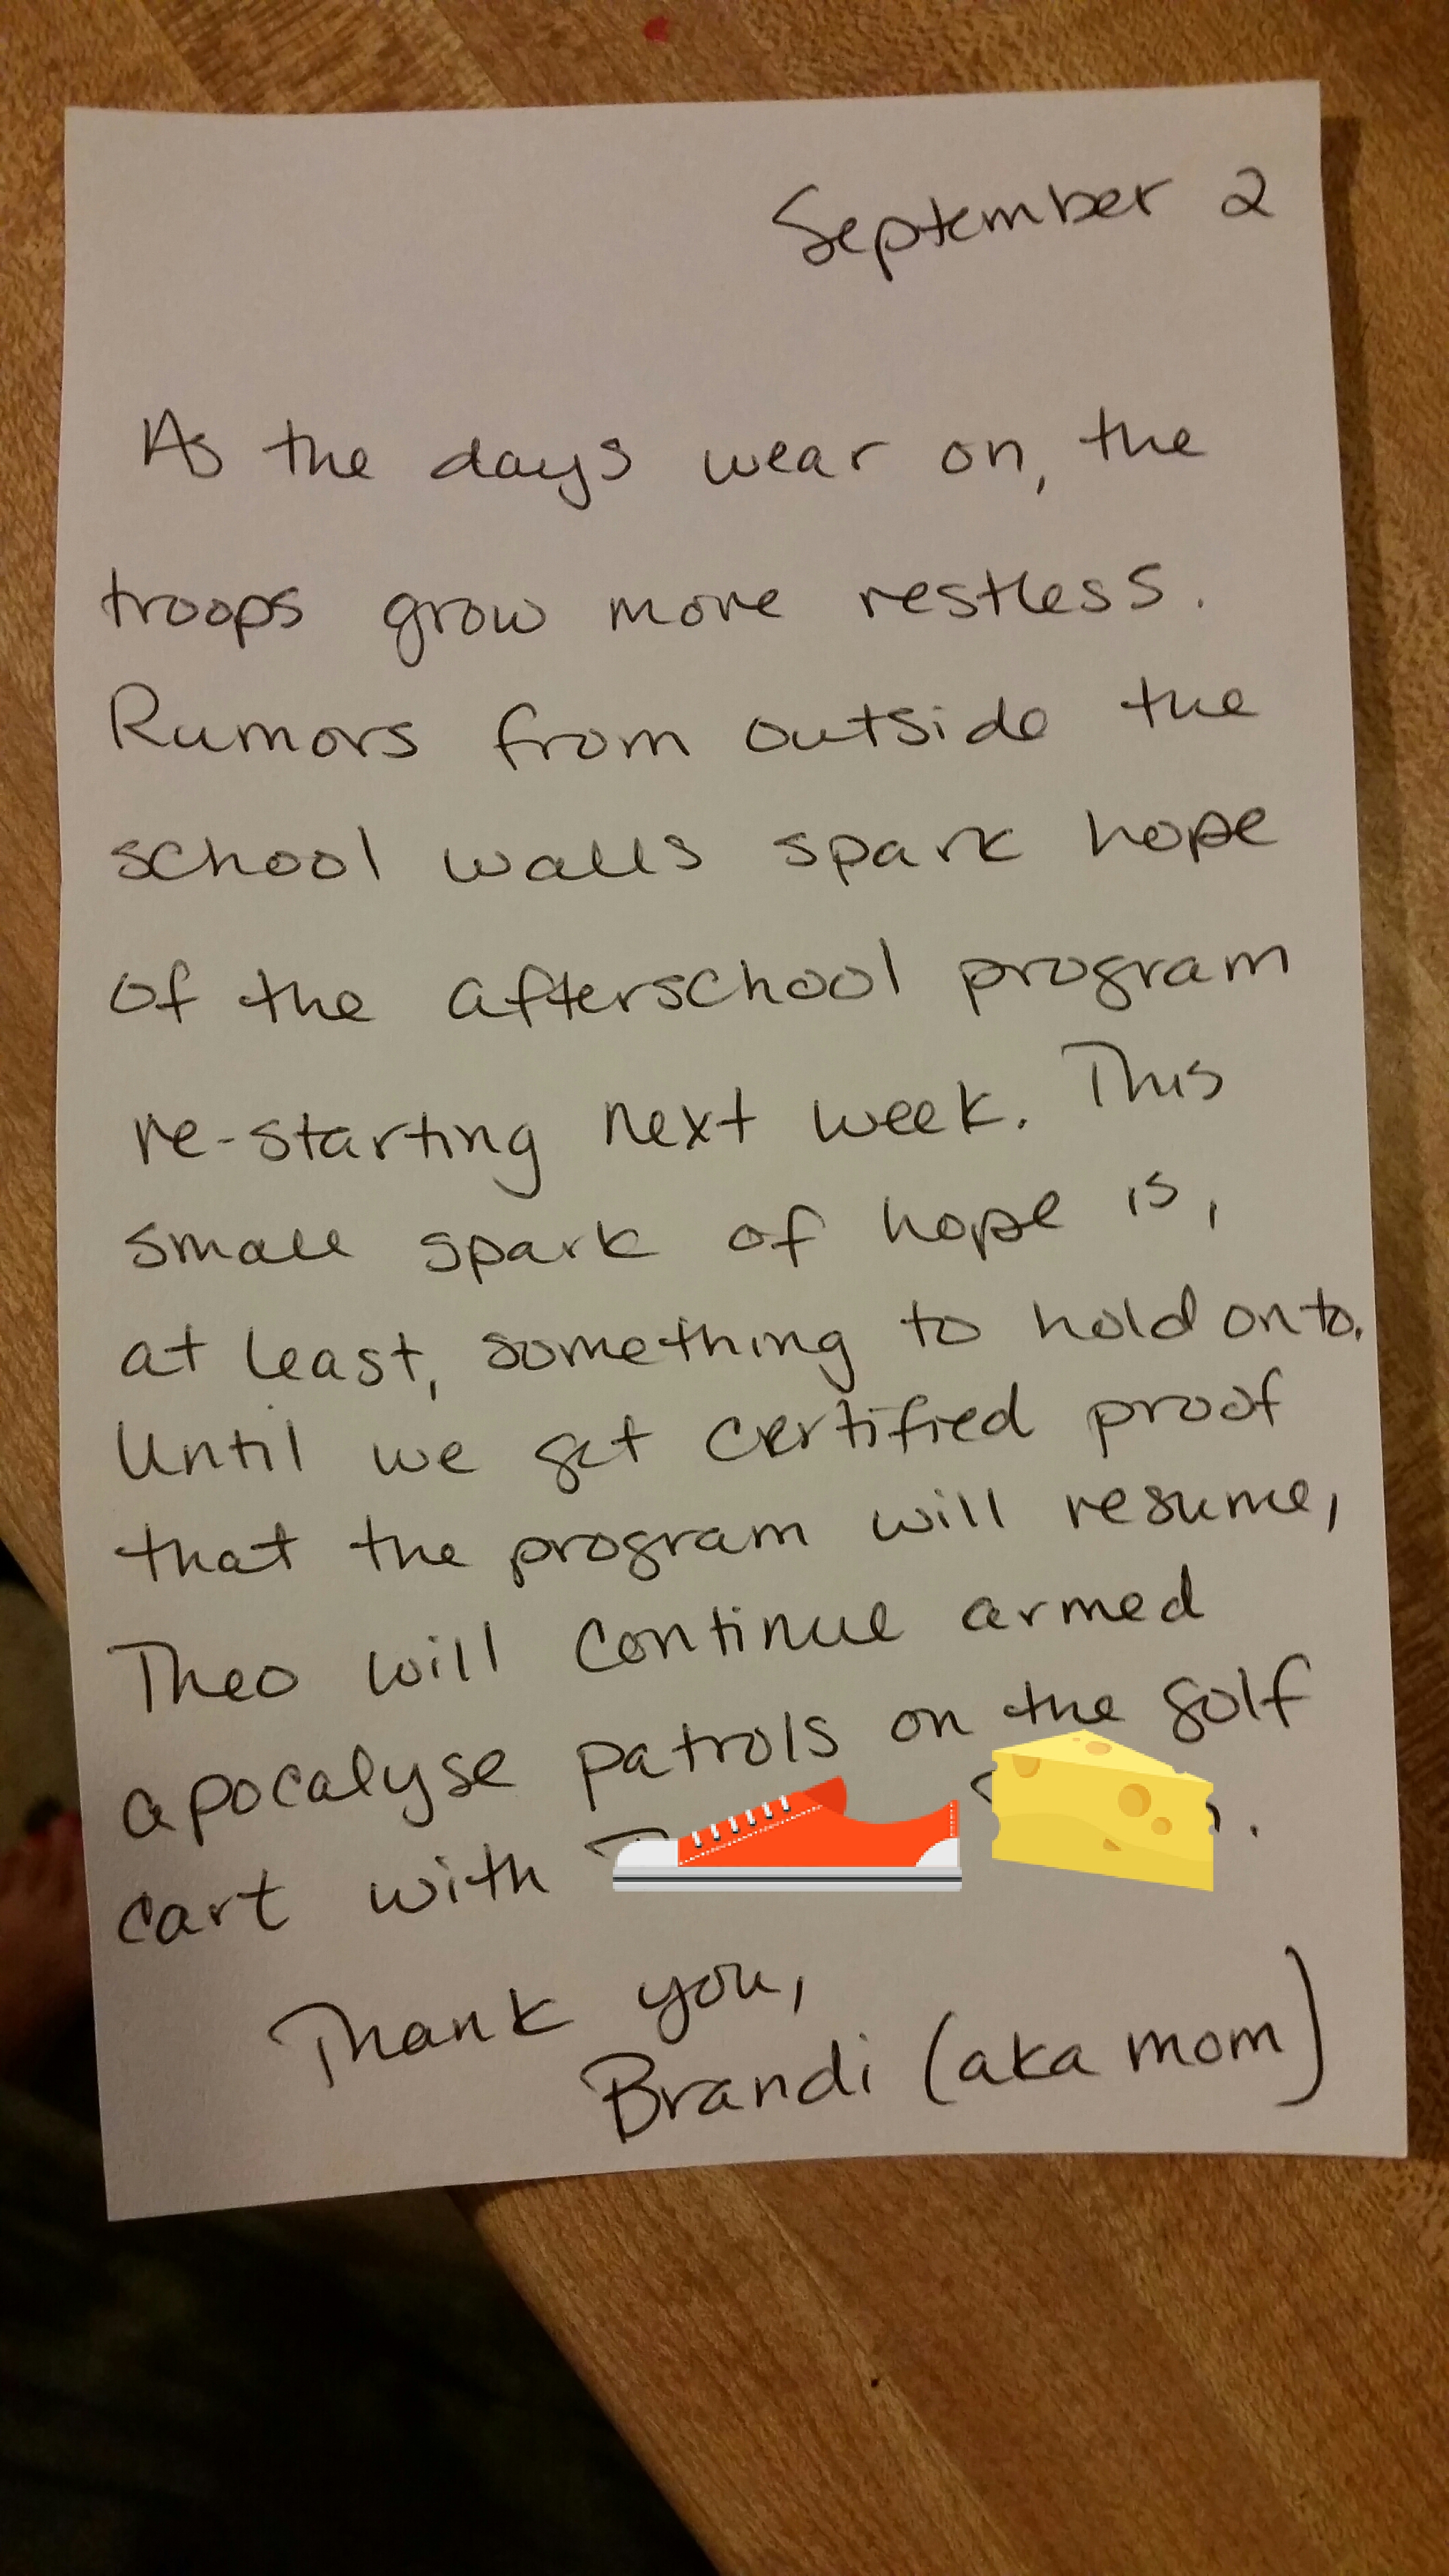 September 2
As the days wear on, the
troops grow more restless.
Rumors from outside the
school walls spark hope
of the afterschool program
re-starting next week. This
small spark of hope is,
at least, something to hold onto.
Until we get certified proof
that the program will resume,
Theo will continue armed
apocalyse patrols on the golf
cart with
Thank you,
Brandi (aka mom)